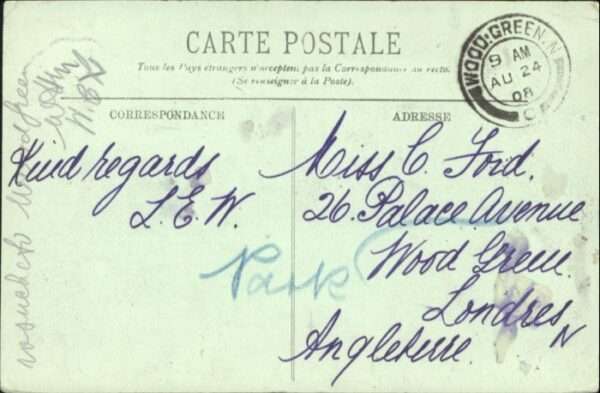 CARTE POSTALE
Tous les Pays étrangers n'acceptent pas la Correspondance au recto.
(Se renseigner à la Poste).
CORRESPONDANCE
ADRESSE
WOOD-GREEN.N
9 AM
AU 24
08
Kind regards
L.E.W.
Miss C. Ford.
26. Palace Avenue
Wood Green
Londres
N
Angleterre.
Park